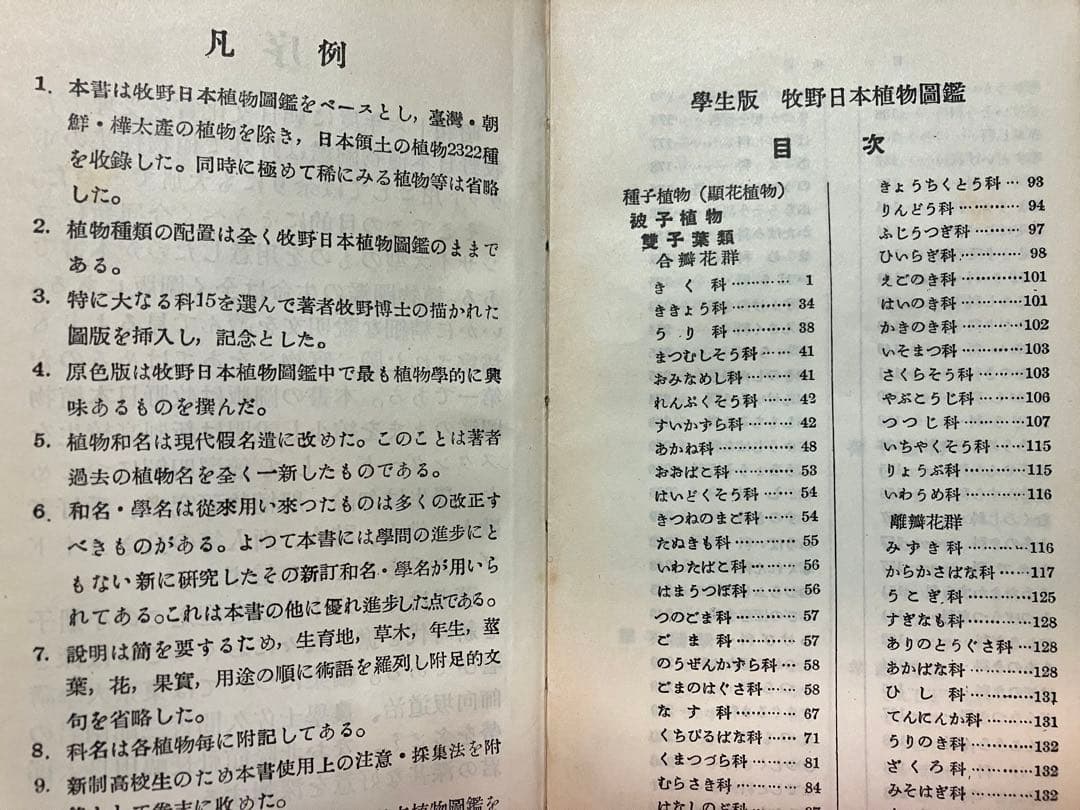 凡例
1. 本書は牧野日本植物圖鑑をベースとし，臺灣・朝
鮮・樺太產の植物を除き，日本領土の植物2322種
を收錄した。同時に極めて稀にみる植物等は省略
した。
2. 植物種類の配置は全く牧野日本植物圖鑑のままで
ある。
3. 特に大なる科15を選んで著者牧野博士の描かれた
圖版を挿入し，記念とした。
4. 原色版は牧野日本植物圖鑑中で最も植物學的に興
味あるものを撰んだ。
5. 植物和名は現代假名遣に改めた。このことは著者
過去の植物名を全く一新したものである。
6. 和名・學名は從來用い來つたものは多くの改正す
べきものがある。よつて本書には學問の進步にと
もない新に硏究したその新訂和名・學名が用いら
れてある。これは本書の他に優れ進步した点である。
7. 說明は簡を要するため，生育地，草木，年生，莖
葉，花，果實，用途の順に術語を羅列し附足的文
句を省略した。
8. 科名は各植物每に附記してある。
9. 新制高校生のため本書使用上の注意・採集法を附
錄として卷末に收めた。
學生版 牧野日本植物圖鑑
目次
種子植物（顯花植物）
被子植物
雙子葉類
合瓣花群
きく科…………1
ききょう科………34
うり科…………38
まつむしそう科……41
おみなめし科………41
れんぷくそう科……42
すいかずら科………42
あかね科…………48
おおばこ科………53
はいどくそう科……54
きつねのまご科……54
たぬきも科………55
いわたばこ科………56
はまうつぼ科………56
つのごま科………57
ごま科…………57
のうぜんかずら科…58
ごまのはぐさ科……58
なす科…………67
くちびるばな科……71
くまつづら科………81
むらさき科………84
はなしのぶ科
きょうちくとう科…93
りんどう科…………94
ふじうつぎ科………97
ひいらぎ科…………98
えごのき科…………101
はいのき科…………101
かきのき科…………102
いそまつ科…………103
さくらそう科………103
やぶこうじ科………106
つつじ科…………107
いちやくそう科……115
りょうぶ科…………115
いわうめ科…………116
離瓣花群
みずき科…………116
からかさばな科……117
うこぎ科…………125
すぎなも科…………128
ありのとうぐさ科…128
あかばな科…………128
ひし科…………131
てんにんか科………131
うりのき科…………132
ざくろ科…………132
みそはぎ科…………132